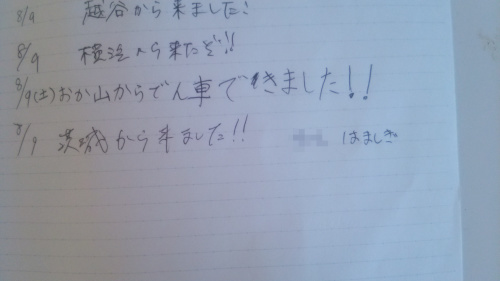 8/9 越谷から来ました!
8/9 横浜から来たぞ!!
8/9(土)おか山からでん車できました!!
8/9 茨城から来ました!! はましぎ